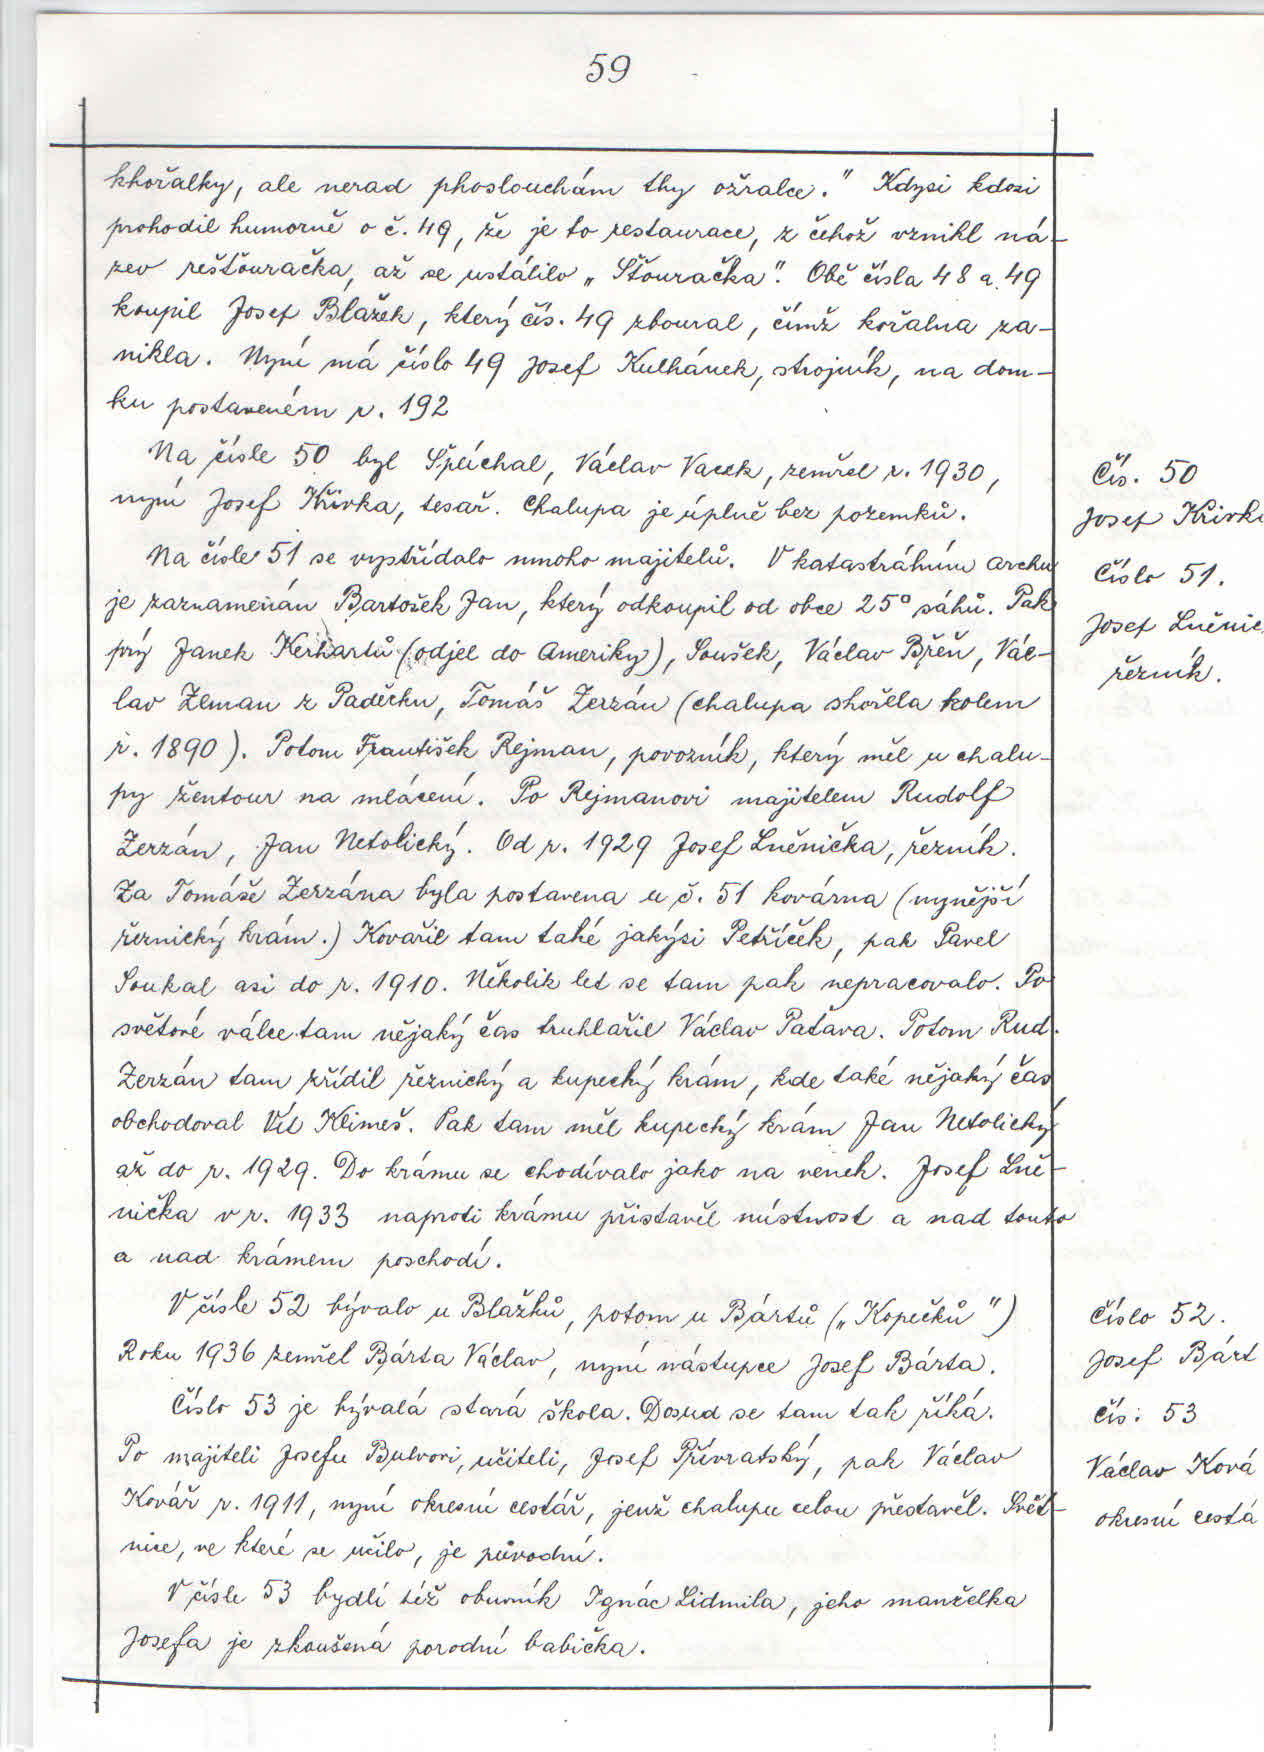 59
khořalky, ale nerad phoslouchám thy ožralce." Kdysi kdosi
prohodil humorně o č. 49, že je to restaurace, z čehož vznikl ná-
zev rešťouračka, až se ustálilo „Šťouračka". Obě čísla 48 a 49
koupil Josef Blažek, který čís. 49 zboural, čímž kořalna za-
nikla. Nyní má číslo 49 Josef Kulhánek, strojník, na dom-
ku postaveném r. 192
Na čísle 50 byl Špeichal, Václav Vacek, zemřel r. 1930,
nyní Josef Křivka, tesař. Chalupa je úplně bez pozemků.
Čís. 50
Josef Křivk
Na čísle 51 se vystřídalo mnoho majitelů. V katastrálním archu
je zaznamenán Bartošek Jan, který odkoupil od obce 25° sáhů. Pak
prý Janek Kerhartů (odjel do Ameriky), Soušek, Václav Břeň, Vác-
lav Zeman z Paděrku, Tomáš Zerzán (chalupa shořela kolem
r. 1890). Potom František Rejman, povozník, který měl u chalu-
py žentour na mlácení. Po Rejmanovi majitelem Rudolf
Zerzán, Jan Netolický. Od r. 1929 Josef Lněnička, řezník.
Za Tomáše Zerzána byla postavena u č. 51 kovárna (nynější
řeznický krám.) Kovařil tam také jakýsi Petříček, pak Pavel
Soukal asi do r. 1910. Několik let se tam pak nepracovalo. Po
světové válce tam nějaký čas truhlařil Václav Paťava. Potom Rud.
Zerzán tam zřídil řeznický a kupecký krám, kde také nějaký čas
obchodoval Vít Klimeš. Pak tam měl kupecký krám Jan Netolický
až do r. 1929. Do krámu se chodívalo jako na venek. Josef Lně-
nička v r. 1933 naproti krámu přistavěl místnost a nad touto
a nad krámem poschodí.
Číslo 51.
Josef Lněnič
řezník.
V čísle 52 bývalo u Blažků, potom u Bártů („Kopečků")
Roku 1936 zemřel Bárta Václav, nyní nástupce Josef Bárta.
Číslo 52.
Josef Bárt
Číslo 53 je bývalá stará škola. Dosud se tam tak říká.
Po majiteli Josefu Bulvovi, učiteli, Josef Přívratský, pak Václav
Kovář r. 1911, nyní okresní cestář, jenž chalupu celou přestavěl. Svět-
nice, ve které se učilo, je původní.
Čís. 53
Václav Ková
okresní cestá
V čísle 53 bydlí též obuvník Ignác Lidmila, jeho manželka
Josefa je zkoušená porodní babička.